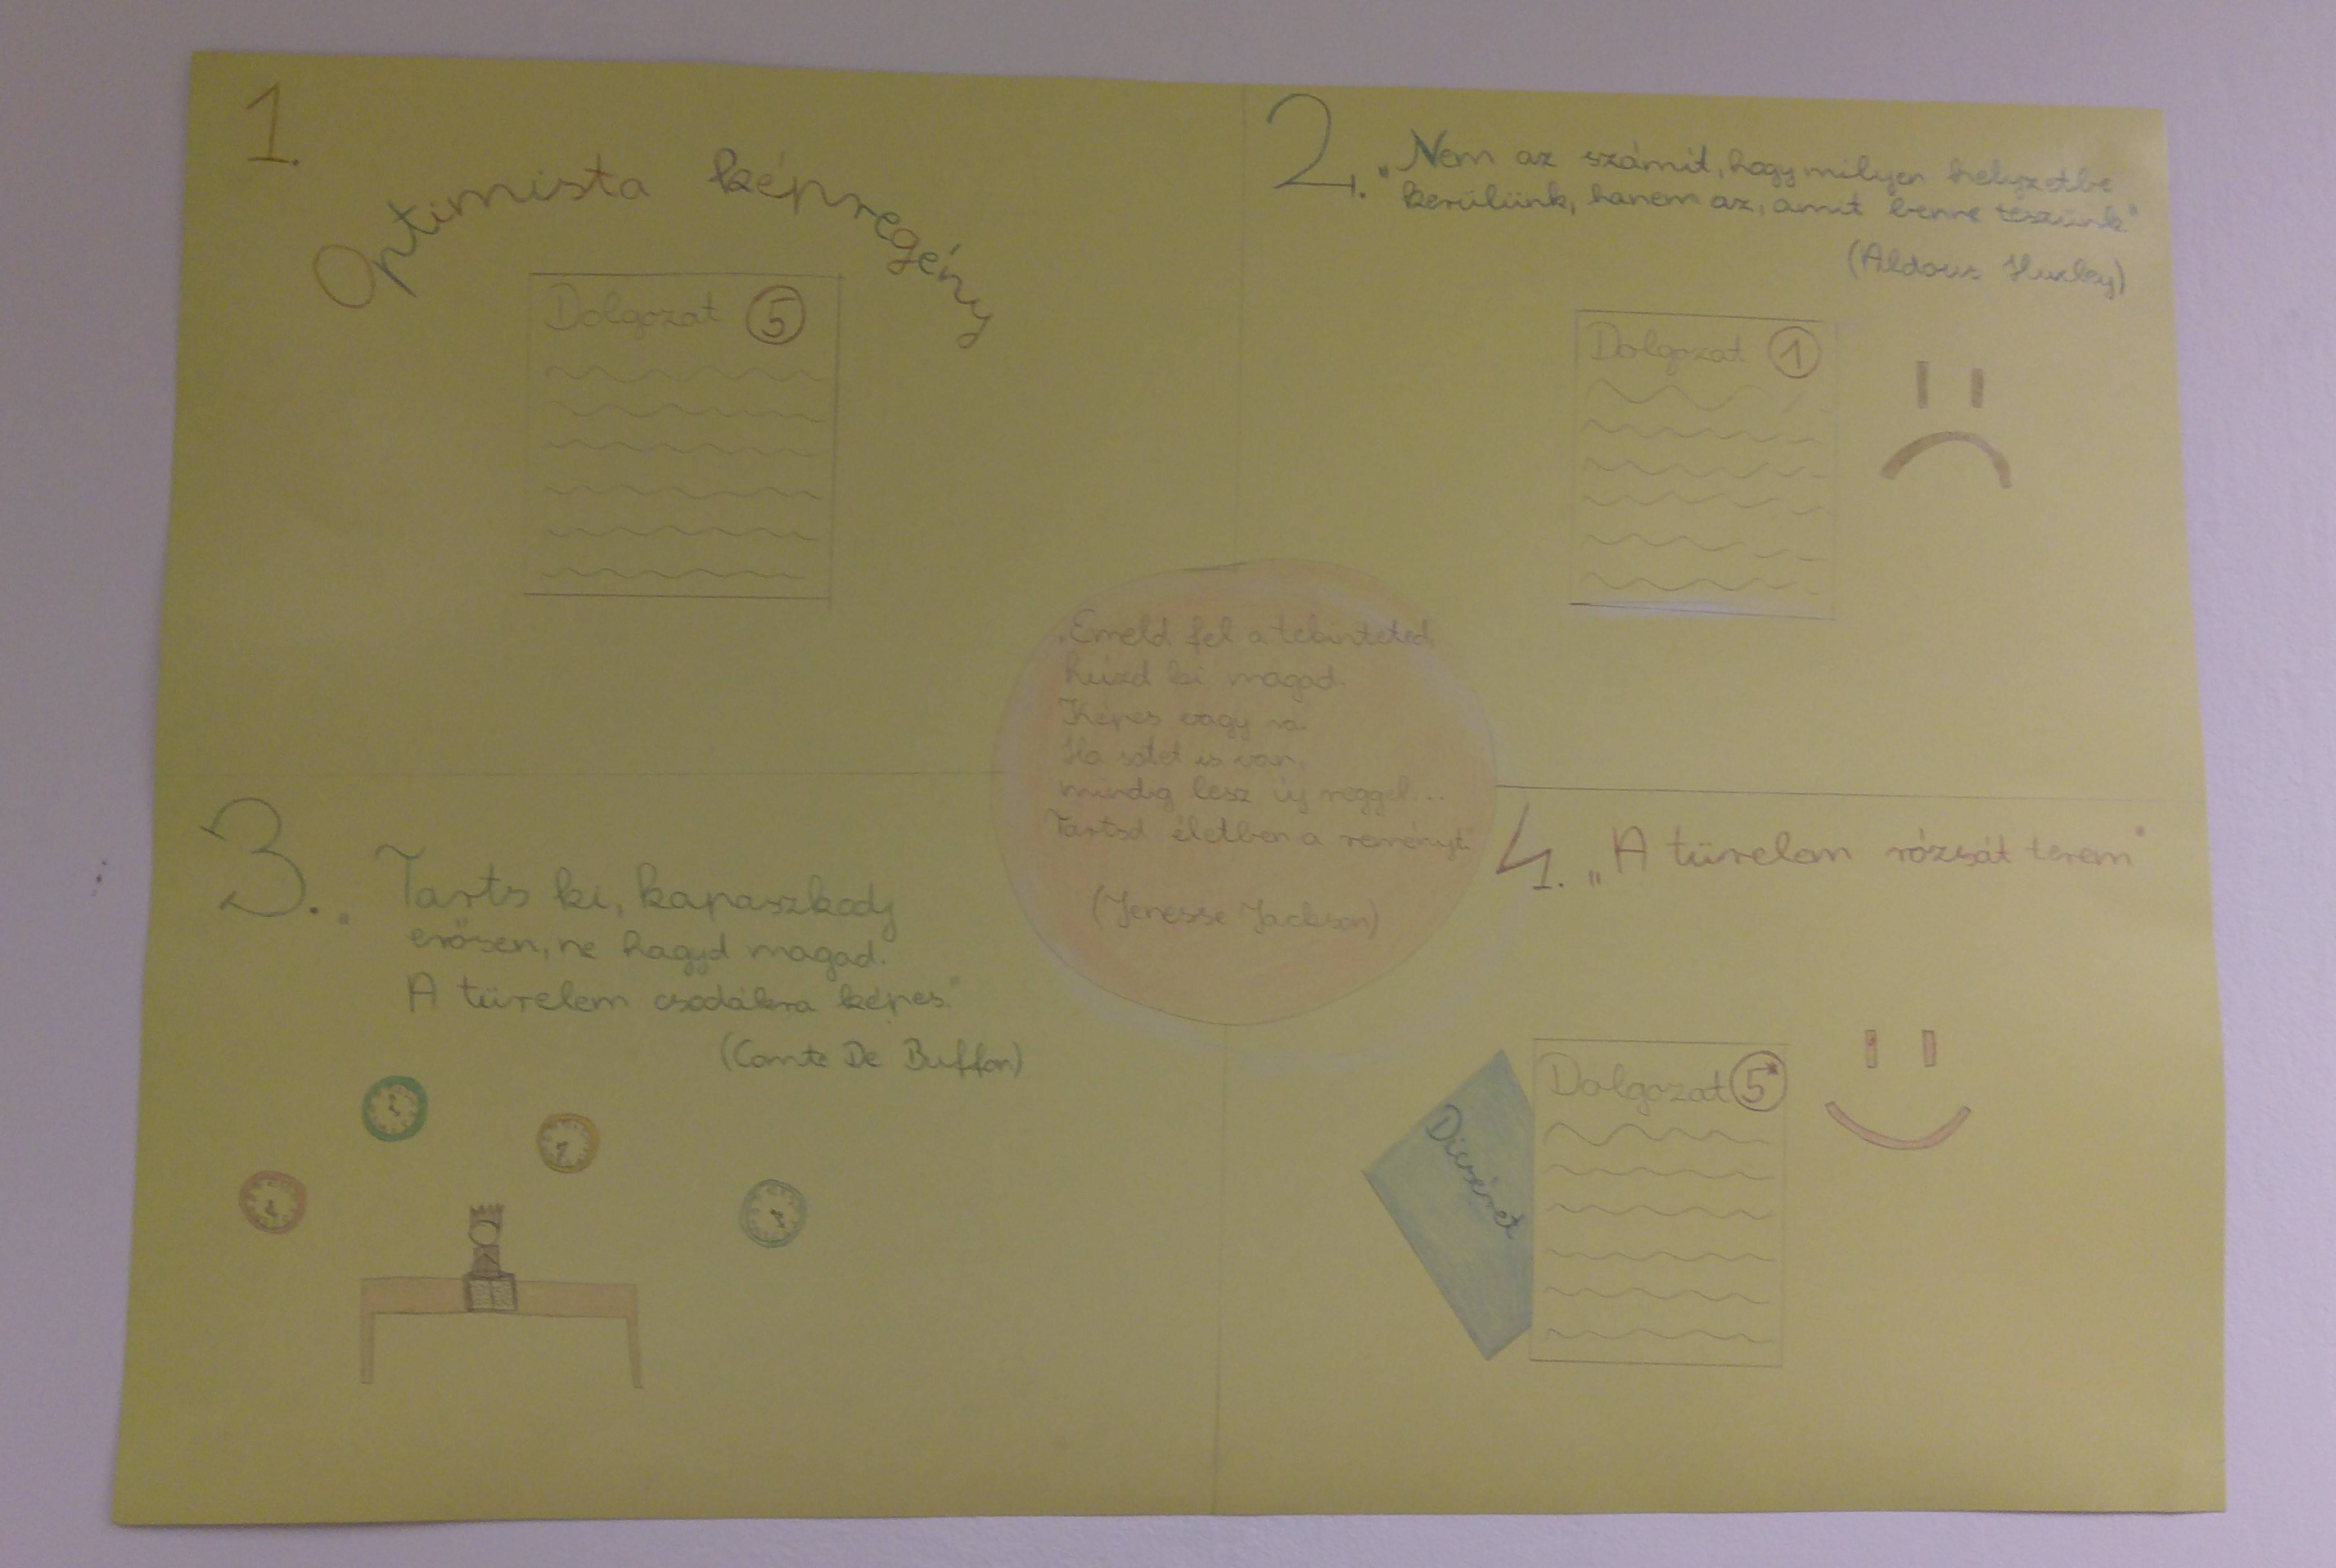 1.
Optimista képregény
Dolgozat 5
2. „Nem az számít, hogy milyen helyzetbe
kerülünk, hanem az, amit benne teszünk"
(Aldous Huxley)
Dolgozat 1
„Emeld fel a tekinteted
Küzd ki magad.
Képes vagy rá.
Ha sötét is van,
mindig lesz új reggel...
Tartsd életben a reményt"
(Jenesse Jackson)
3. „Tarts ki, kapaszkodj
erősen, ne hagyd magad.
A türelem csodákra képes."
(Comte De Buffon)
4. „A türelem rózsát terem"
Dolgozat 5*
Dicséret